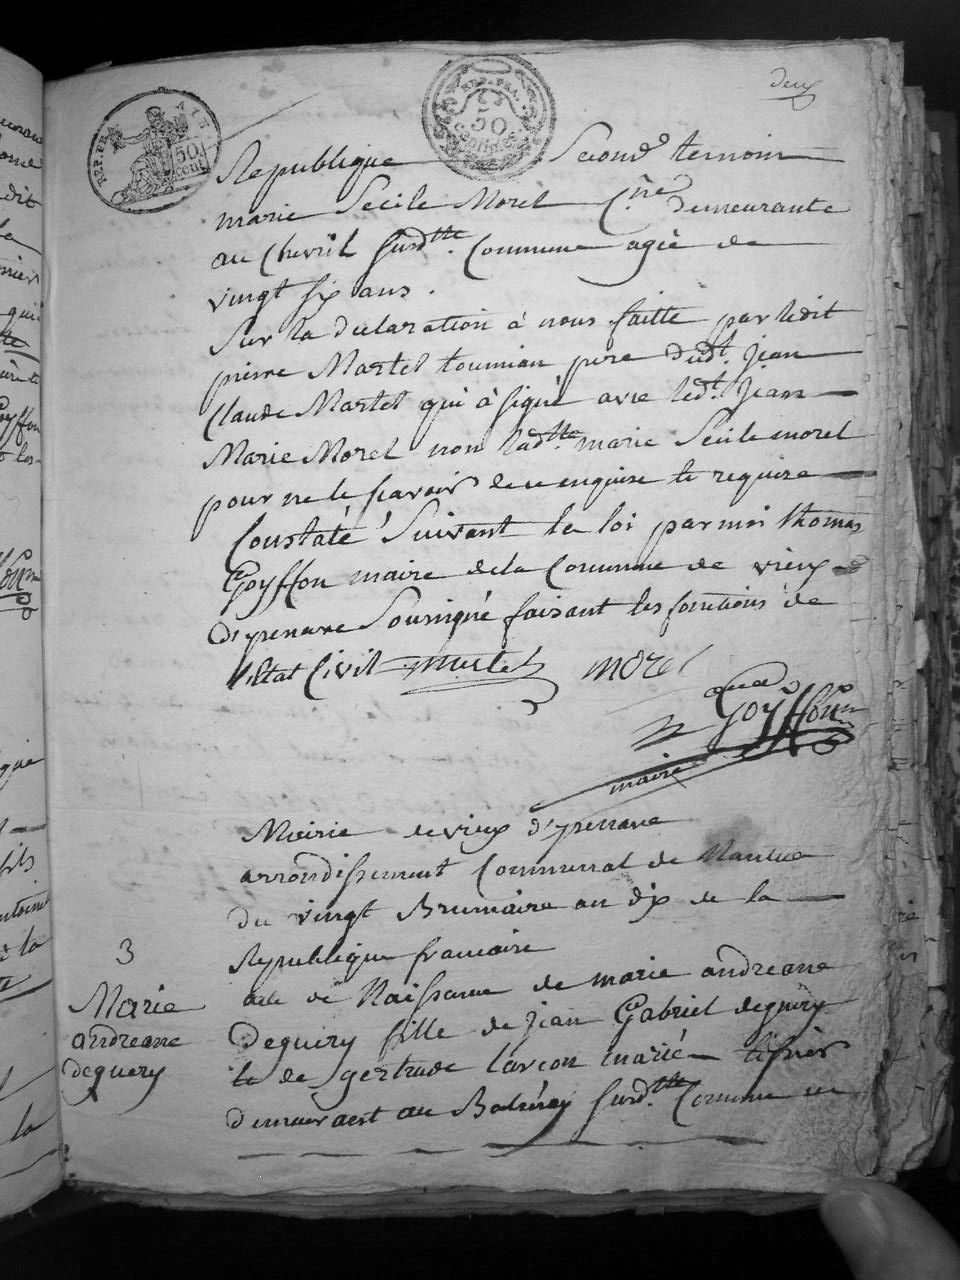 deux
REP. FRA.
50
cent
REP. FRA.
50
centimes
Republique Second temoin
marie Secile Morel Cne demeurante
au Chevril surdtte Commune agée de
vingt six ans.
Sur la declaration à nous faitte par ledit
pierre Martel tournian pere dudt. jean
Claude Martel qui à signé avec ledt. jean
Marie Morel non ladtte marie Secile morel
pour ne le scavoir de ce enquise et requise
Constaté Suivant la loi par moi thomas
Goyffon maire de la Commune de vieux
d'yzenave Soussigné faisant les fonctions de
l'Etat Civil Martel morel
Goyffon
maire
Mairie de vieux d'yzenave
arrondissement Communal de Nantua
du vingt Brumaire an dix de la
Republique francaise
3
Marie
andreane
deguery
acte de Naissance de marie andreane
Deguery fille de jean Gabriel deguery
et de gertrude larcon mariés
demeurant au surdtte Commune